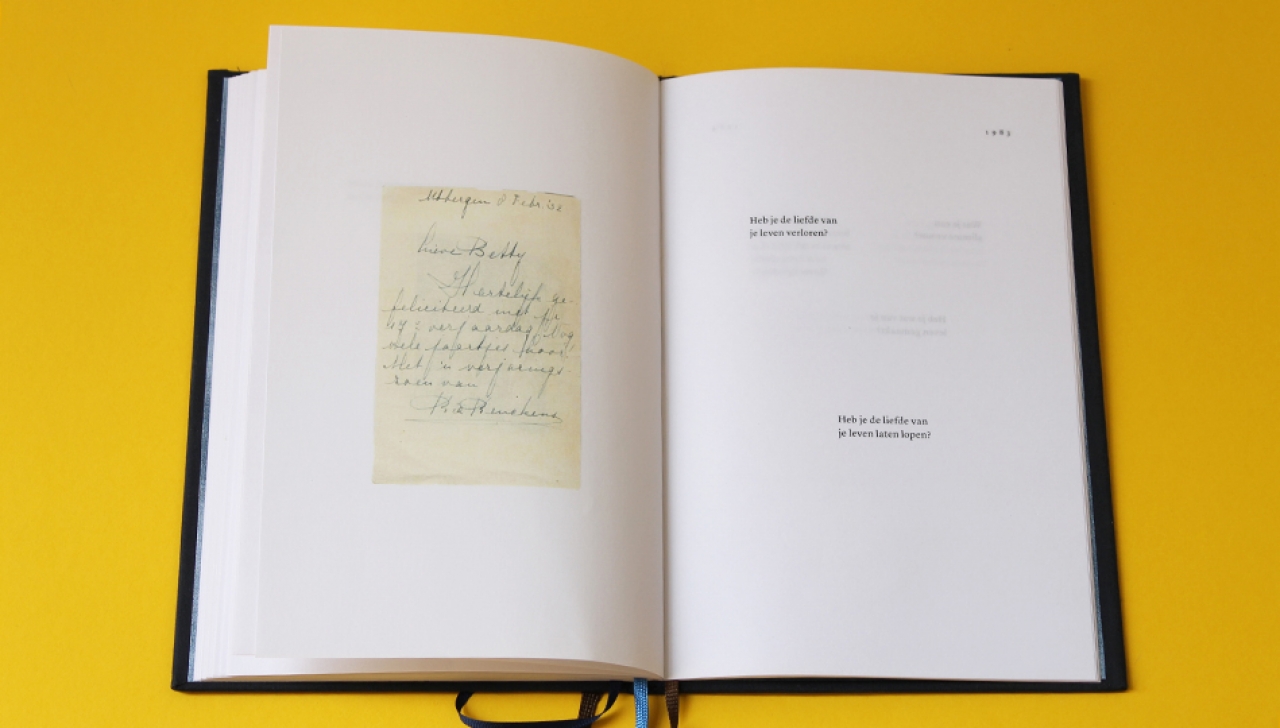 Febr. '52
Lieve Betty
Hartelijk ge-
feliciteerd met je
verjaardag. Nog
vele jaartjes hoor!
Met 'n verjarings-
zoen van
1983
Heb je de liefde van
je leven verloren?
Heb je de liefde van
je leven laten lopen?